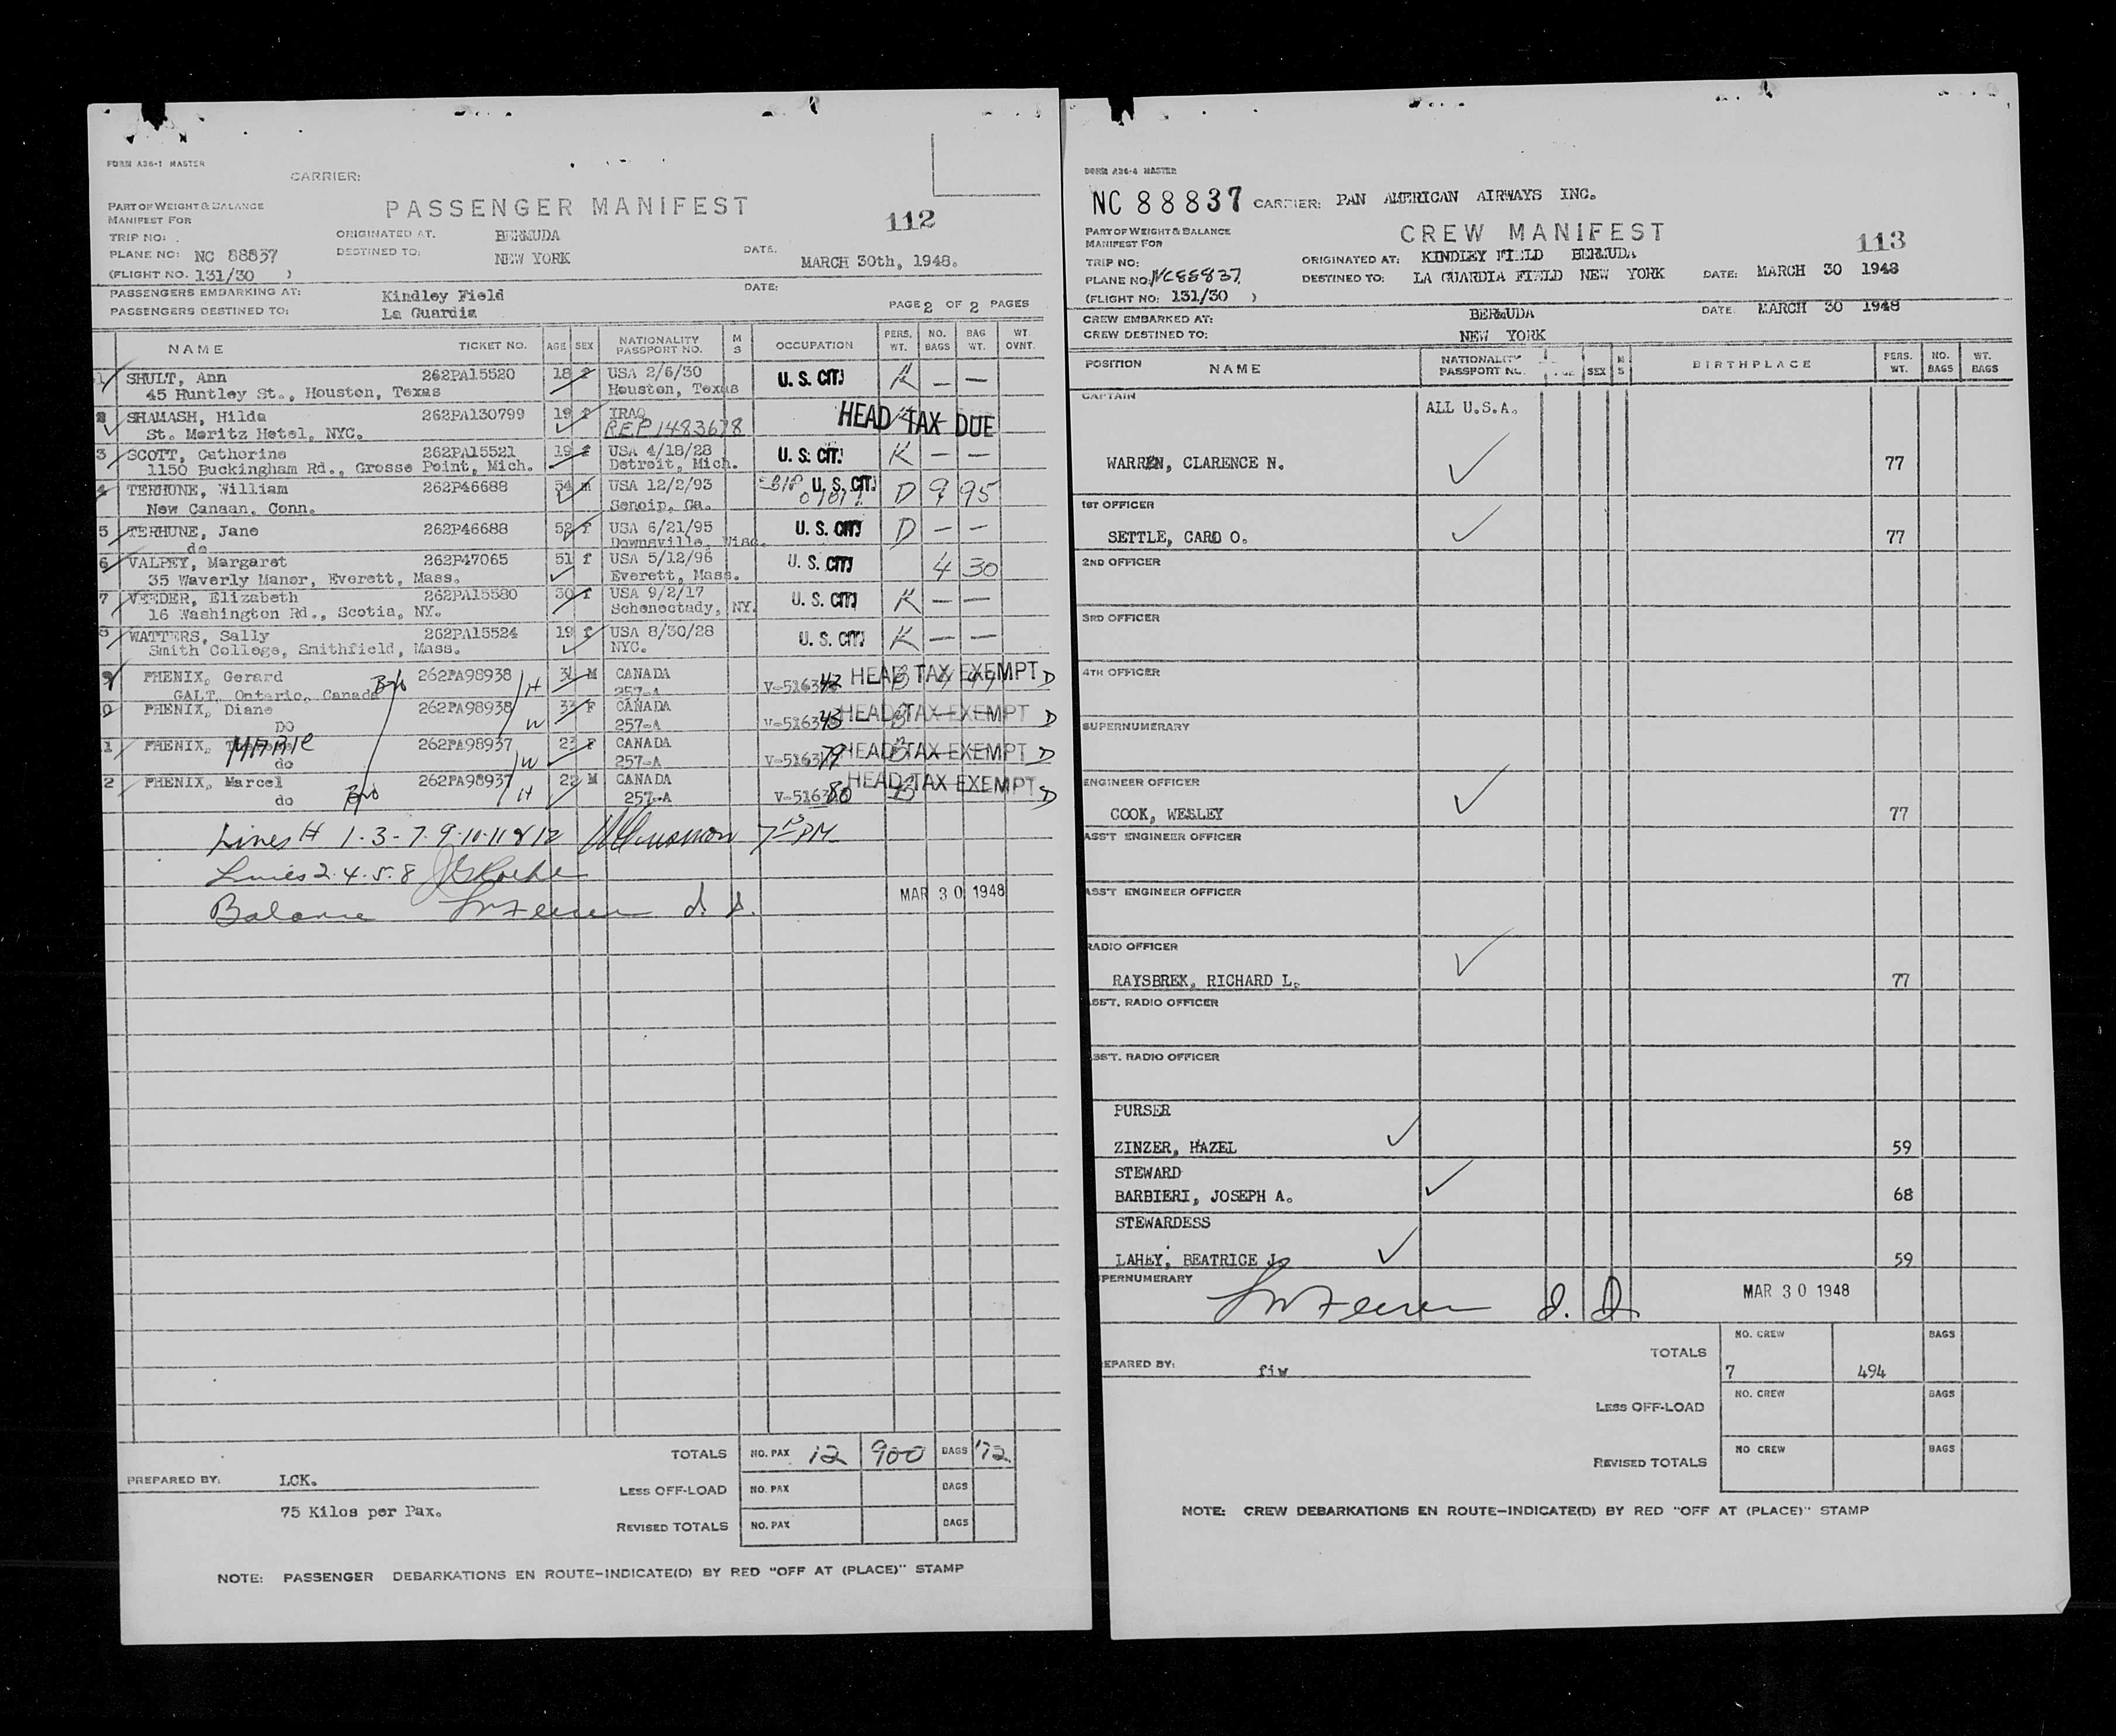 FORM A36-1 MASTER
CARRIER:
PART OF WEIGHT & BALANCE
MANIFEST FOR
PASSENGER MANIFEST
112
TRIP NO:
ORIGINATED AT. BERMUDA
PLANE NO: NC 88837
DESTINED TO: NEW YORK
DATE. MARCH 30th, 1948.
(FLIGHT NO. 131/30 )
PASSENGERS EMBARKING AT: Kindley Field
DATE:
PASSENGERS DESTINED TO: La Guardia
PAGE 2 OF 2 PAGES
NAME TICKET NO. AGE SEX NATIONALITY PASSPORT NO. M S OCCUPATION PERS. WT. NO. BAGS BAG WT. WT. OVNT.
1 SHULT, Ann 262PA15520 18 f USA 2/6/30 U. S. CIT. K — —
45 Huntley St., Houston, Texas Houston, Texas
2 SHAMASH, Hilda 262PA130799 19 f IRAQ HEAD TAX DUE
St. Moritz Hotel, NYC. REP 1483678
3 SCOTT, Catherine 262PA15521 19 f USA 4/18/28 U. S. CIT. K — —
1150 Buckingham Rd., Grosse Point, Mich. Detroit, Mich.
4 TERHUNE, William 262P46688 54 m USA 12/2/93 U. S. CIT. D 9 95
New Canaan, Conn. Senoip, Ga.
5 TERHUNE, Jane 262P46688 52 f USA 6/21/95 U. S. CIT. D — —
do Downsville, Wisc.
6 VALPEY, Margaret 262P47065 51 f USA 5/12/96 U. S. CIT. 4 30
35 Waverly Manor, Everett, Mass. Everett, Mass.
7 VEEDER, Elizabeth 262PA15580 30 f USA 9/2/17 U. S. CIT. K — —
16 Washington Rd., Scotia, NY. Schenectady, NY.
8 WATTERS, Sally 262PA15524 19 f USA 8/30/28 U. S. CIT. K — —
Smith College, Smithfield, Mass. NYC.
9 PHENIX, Gerard 262PA98938 M CANADA HEAD TAX EXEMPT D
GALT, Ontario, Canada H 257-A V-516342
0 PHENIX, Diane 262PA98938 33 F CANADA HEAD TAX EXEMPT D
DO W 257-A V-516343
1 PHENIX, MARIE 262PA98937 23 F CANADA HEAD TAX EXEMPT D
do W 257-A V-516379
2 PHENIX, Marcel 262PA98937 22 M CANADA HEAD TAX EXEMPT D
do H 257-A V-516380
Lines # 1-3-7-9-10-11 & 12 PM
Lines 2-4-5-8
Balance
MAR 30 1948
TOTALS NO. PAX 12 900 BAGS 172
PREPARED BY: LCK.
LESS OFF-LOAD NO. PAX BAGS
75 Kilos per Pax.
REVISED TOTALS NO. PAX BAGS
NOTE: PASSENGER DEBARKATIONS EN ROUTE-INDICATE(D) BY RED "OFF AT (PLACE)" STAMP
FORM A36-4 MASTER
NC 88837 CARRIER: PAN AMERICAN AIRWAYS INC.
PART OF WEIGHT & BALANCE
MANIFEST FOR
CREW MANIFEST
113
TRIP NO:
ORIGINATED AT: KINDLEY FIELD BERMUDA
PLANE NO: NC88837
DESTINED TO: LA GUARDIA FIELD NEW YORK DATE: MARCH 30 1948
(FLIGHT NO: 131/30 )
CREW EMBARKED AT: BERMUDA DATE: MARCH 30 1948
CREW DESTINED TO: NEW YORK
POSITION NAME NATIONALITY PASSPORT NO. AGE SEX M S BIRTHPLACE PERS. WT. NO. BAGS WT. BAGS
CAPTAIN
ALL U.S.A.
WARREN, CLARENCE N. 77
1ST OFFICER
SETTLE, CARD O. 77
2ND OFFICER
3RD OFFICER
4TH OFFICER
SUPERNUMERARY
ENGINEER OFFICER
COOK, WESLEY 77
ASS'T ENGINEER OFFICER
ASS'T ENGINEER OFFICER
RADIO OFFICER
RAYSBREK, RICHARD L. 77
ASS'T. RADIO OFFICER
ASS'T. RADIO OFFICER
PURSER
ZINZER, HAZEL 59
STEWARD
BARBIERI, JOSEPH A. 68
STEWARDESS
LAHEY, BEATRICE J. 59
SUPERNUMERARY
MAR 30 1948
TOTALS NO. CREW 7 494 BAGS
PREPARED BY: fiw
LESS OFF-LOAD NO. CREW BAGS
REVISED TOTALS NO CREW BAGS
NOTE: CREW DEBARKATIONS EN ROUTE-INDICATE(D) BY RED "OFF AT (PLACE)" STAMP